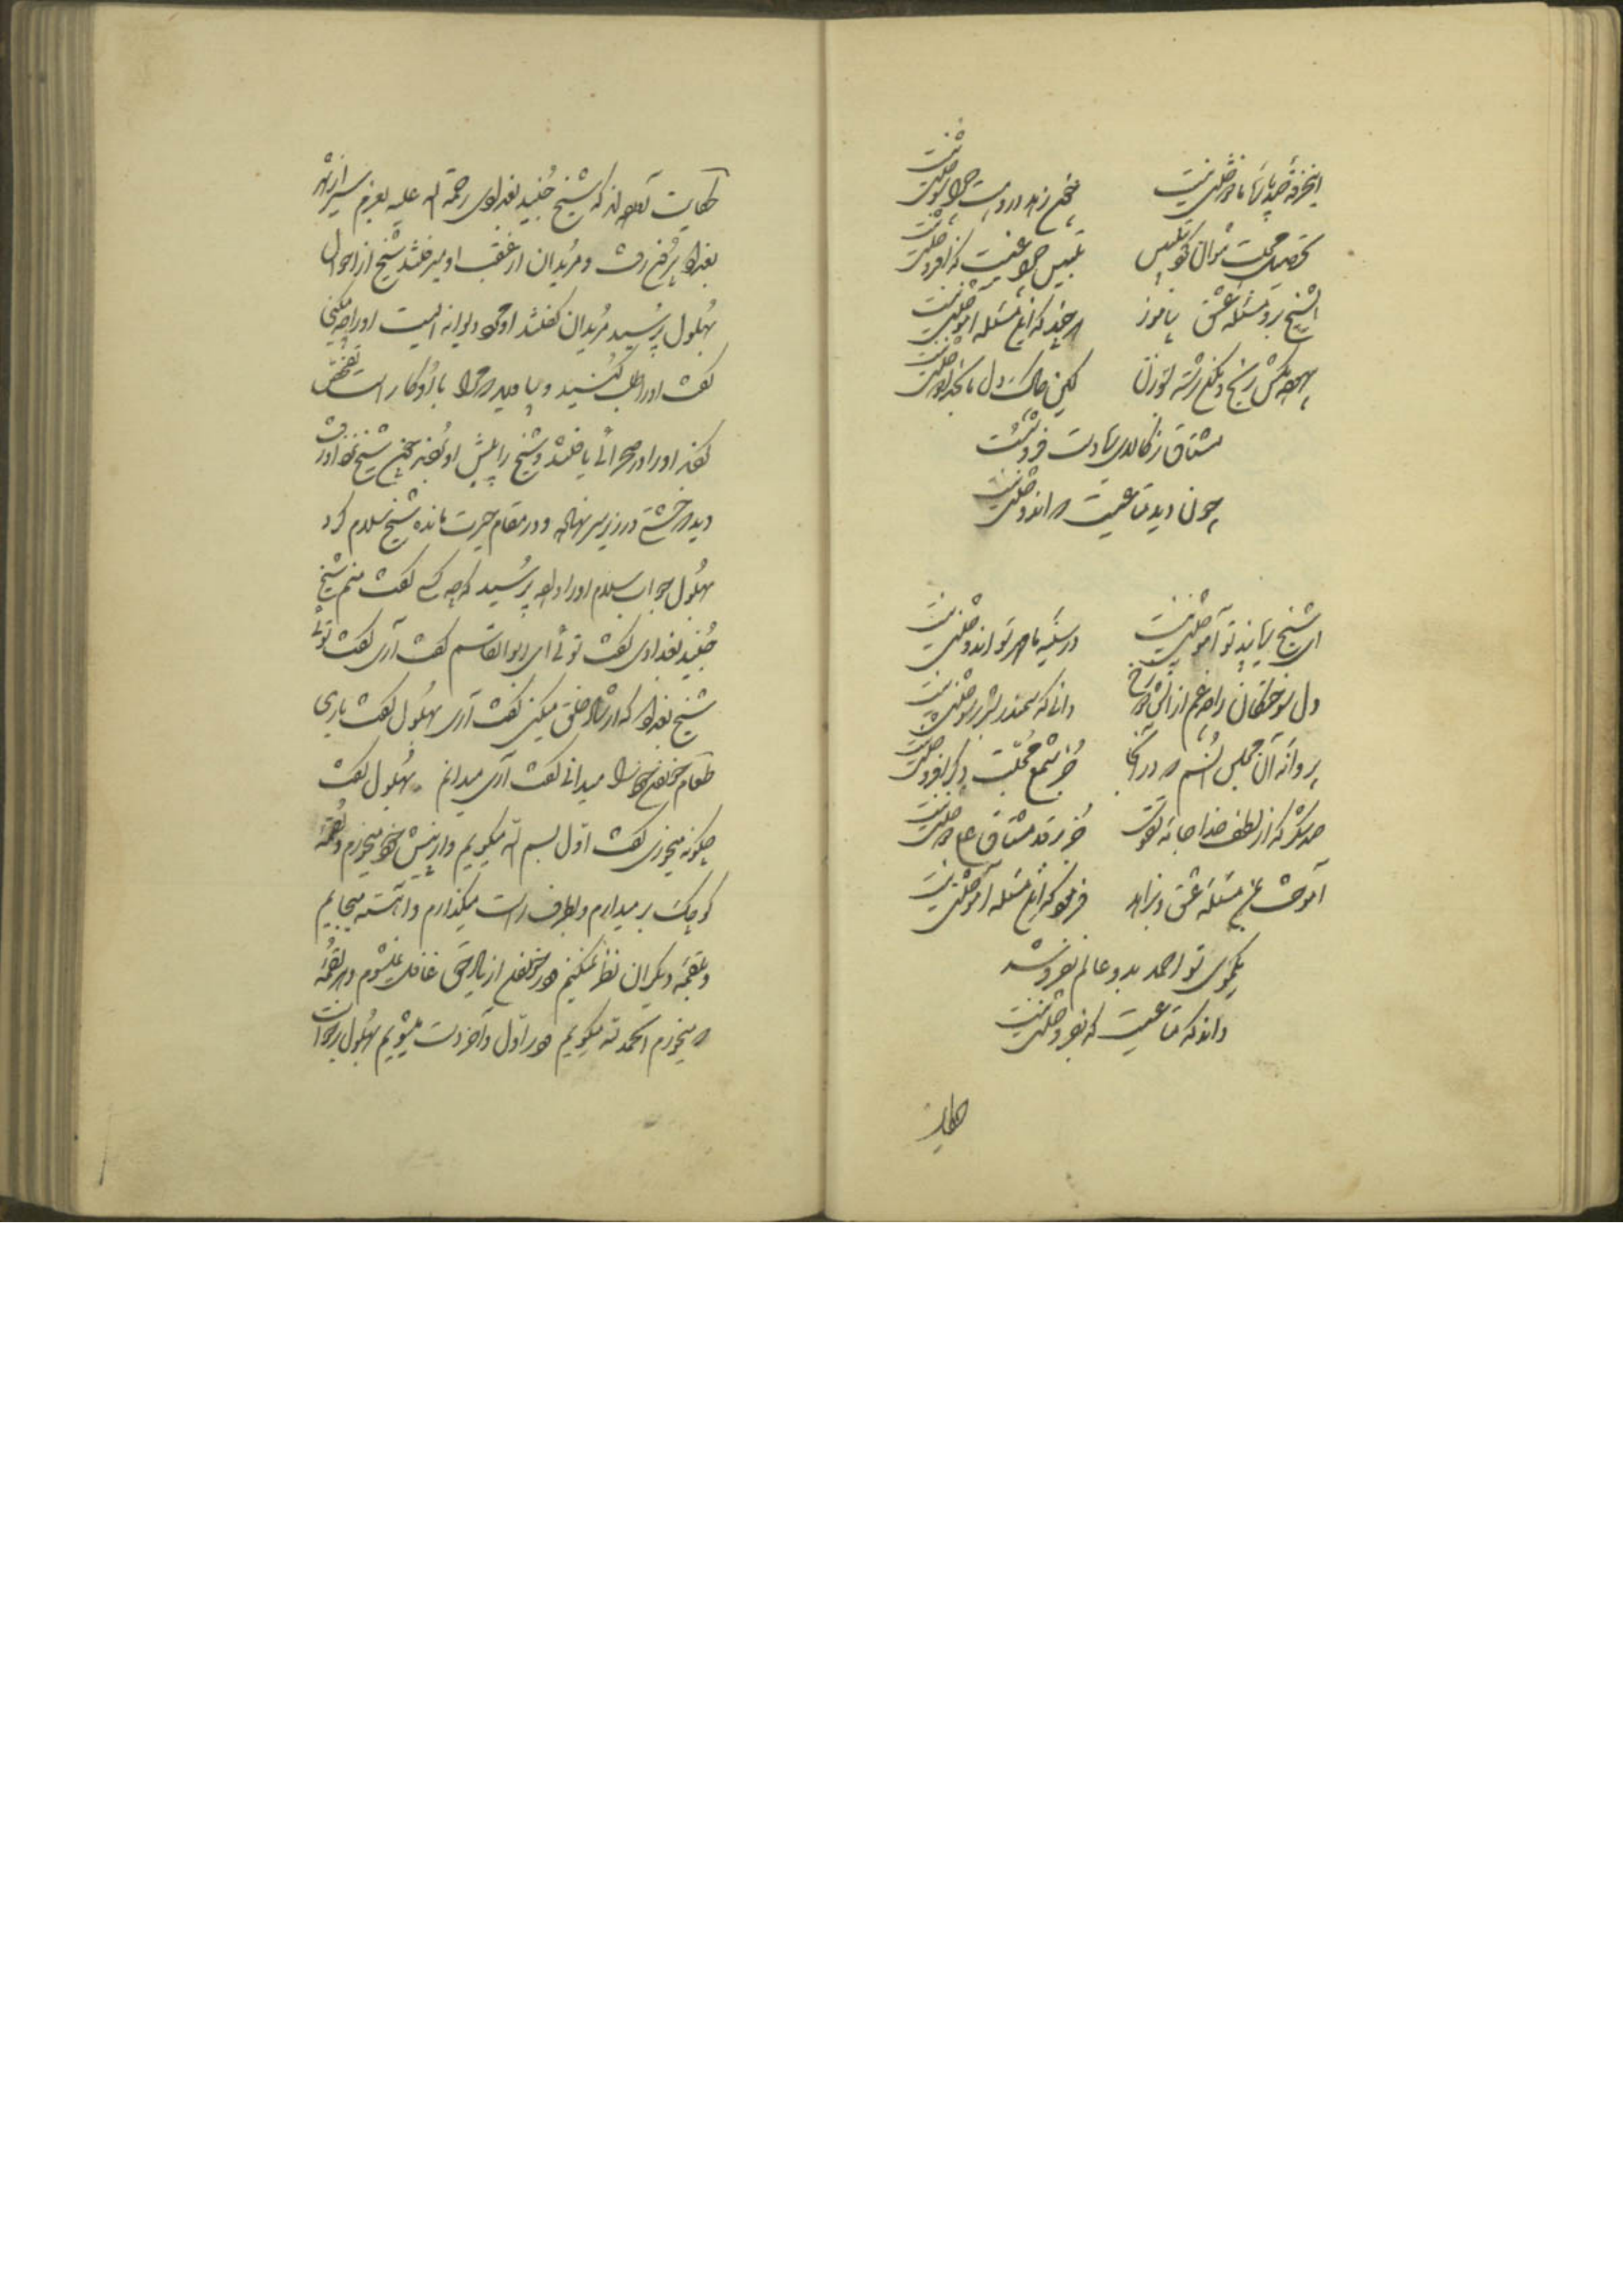 اینخرقهٔ صد پارهٔ ما دوختنی نیست
تخم زهد و سوختنی نیست
تحصیل محبت نتوان کرد بتلبیس
تلبیس چراغیست که افروختنی نیست
ای شیخ برو مسئلهٔ عشق بیاموز
هر چند که این مسئله آموختنی نیست
بیهوده مکش رنج و مکن رشته بسوزن
کین چاک دل ما بخدا دوختنی نیست
مشتاق ز کالای سعادت فروشست
چون دید متاعیست که اندوختنی نیست
ای شیخ بما پند تو آموختنی نیست
در سینهٔ ما مهر تو اندوختنی نیست
دل سوختگان را چه غم از آتش دوزخ
دانی که سمندر بشرر سوختنی نیست
پروانهٔ آن مجلس انسم که در آنجا
جز شمع محبت دگر افروختنی نیست
صد شکر که از لطف خدا جامهٔ تقوی
جز بر قد مشتاق علی دوختنی نیست
آموخت بمن مسئلهٔ عشق و پس آنگه
فرمود که این مسئله آموختنی نیست
یکموی تو احمد بدو عالم نفروشد
داند که متاعیست که بفروختنی نیست
حکایت
حکایت آورده‌اند که شیخ جنید بغدادی رحمة الله علیه بعزم سیر از شهر
بغداد بیرون رفت و مریدان از عقب او میرفتند شیخ از احوال
بهلول پرسید مریدان گفتند او مرد دیوانه ایست او را چه میکنی
گفت او را طلب کنید و بیاورید که مرا با او کار است تفحص
کردند او را در صحرائی یافتند و شیخ را پیش او بردند چون شیخ نزد او رفت
دید که خشتی در زیر سر نهاده و در مقام حیرت مانده شیخ سلام کرد
بهلول جواب سلام او را داده پرسید که چه کسی گفت منم شیخ
جنید بغدادی گفت توئی ای ابوالقاسم گفت آری گفت توئی
شیخ بغداد که ارشاد خلق میکنی گفت آری بهلول گفت باری
طعام خوردن خود را میدانی گفت آری میدانم بهلول گفت
چگونه میخوری گفت اول بسم الله میگویم و از پیش خود میخورم و لقمهٔ
کوچک بر میدارم و بطرف راست میگذارم و آهسته میجایم
و بلقمهٔ دیگران نظر نمیکنم و در خوردن از یاد حق غافل نمیشوم و هر لقمهٔ
که میخورم الحمد لله میگویم و در اول و آخر دست میشویم بهلول برخواست